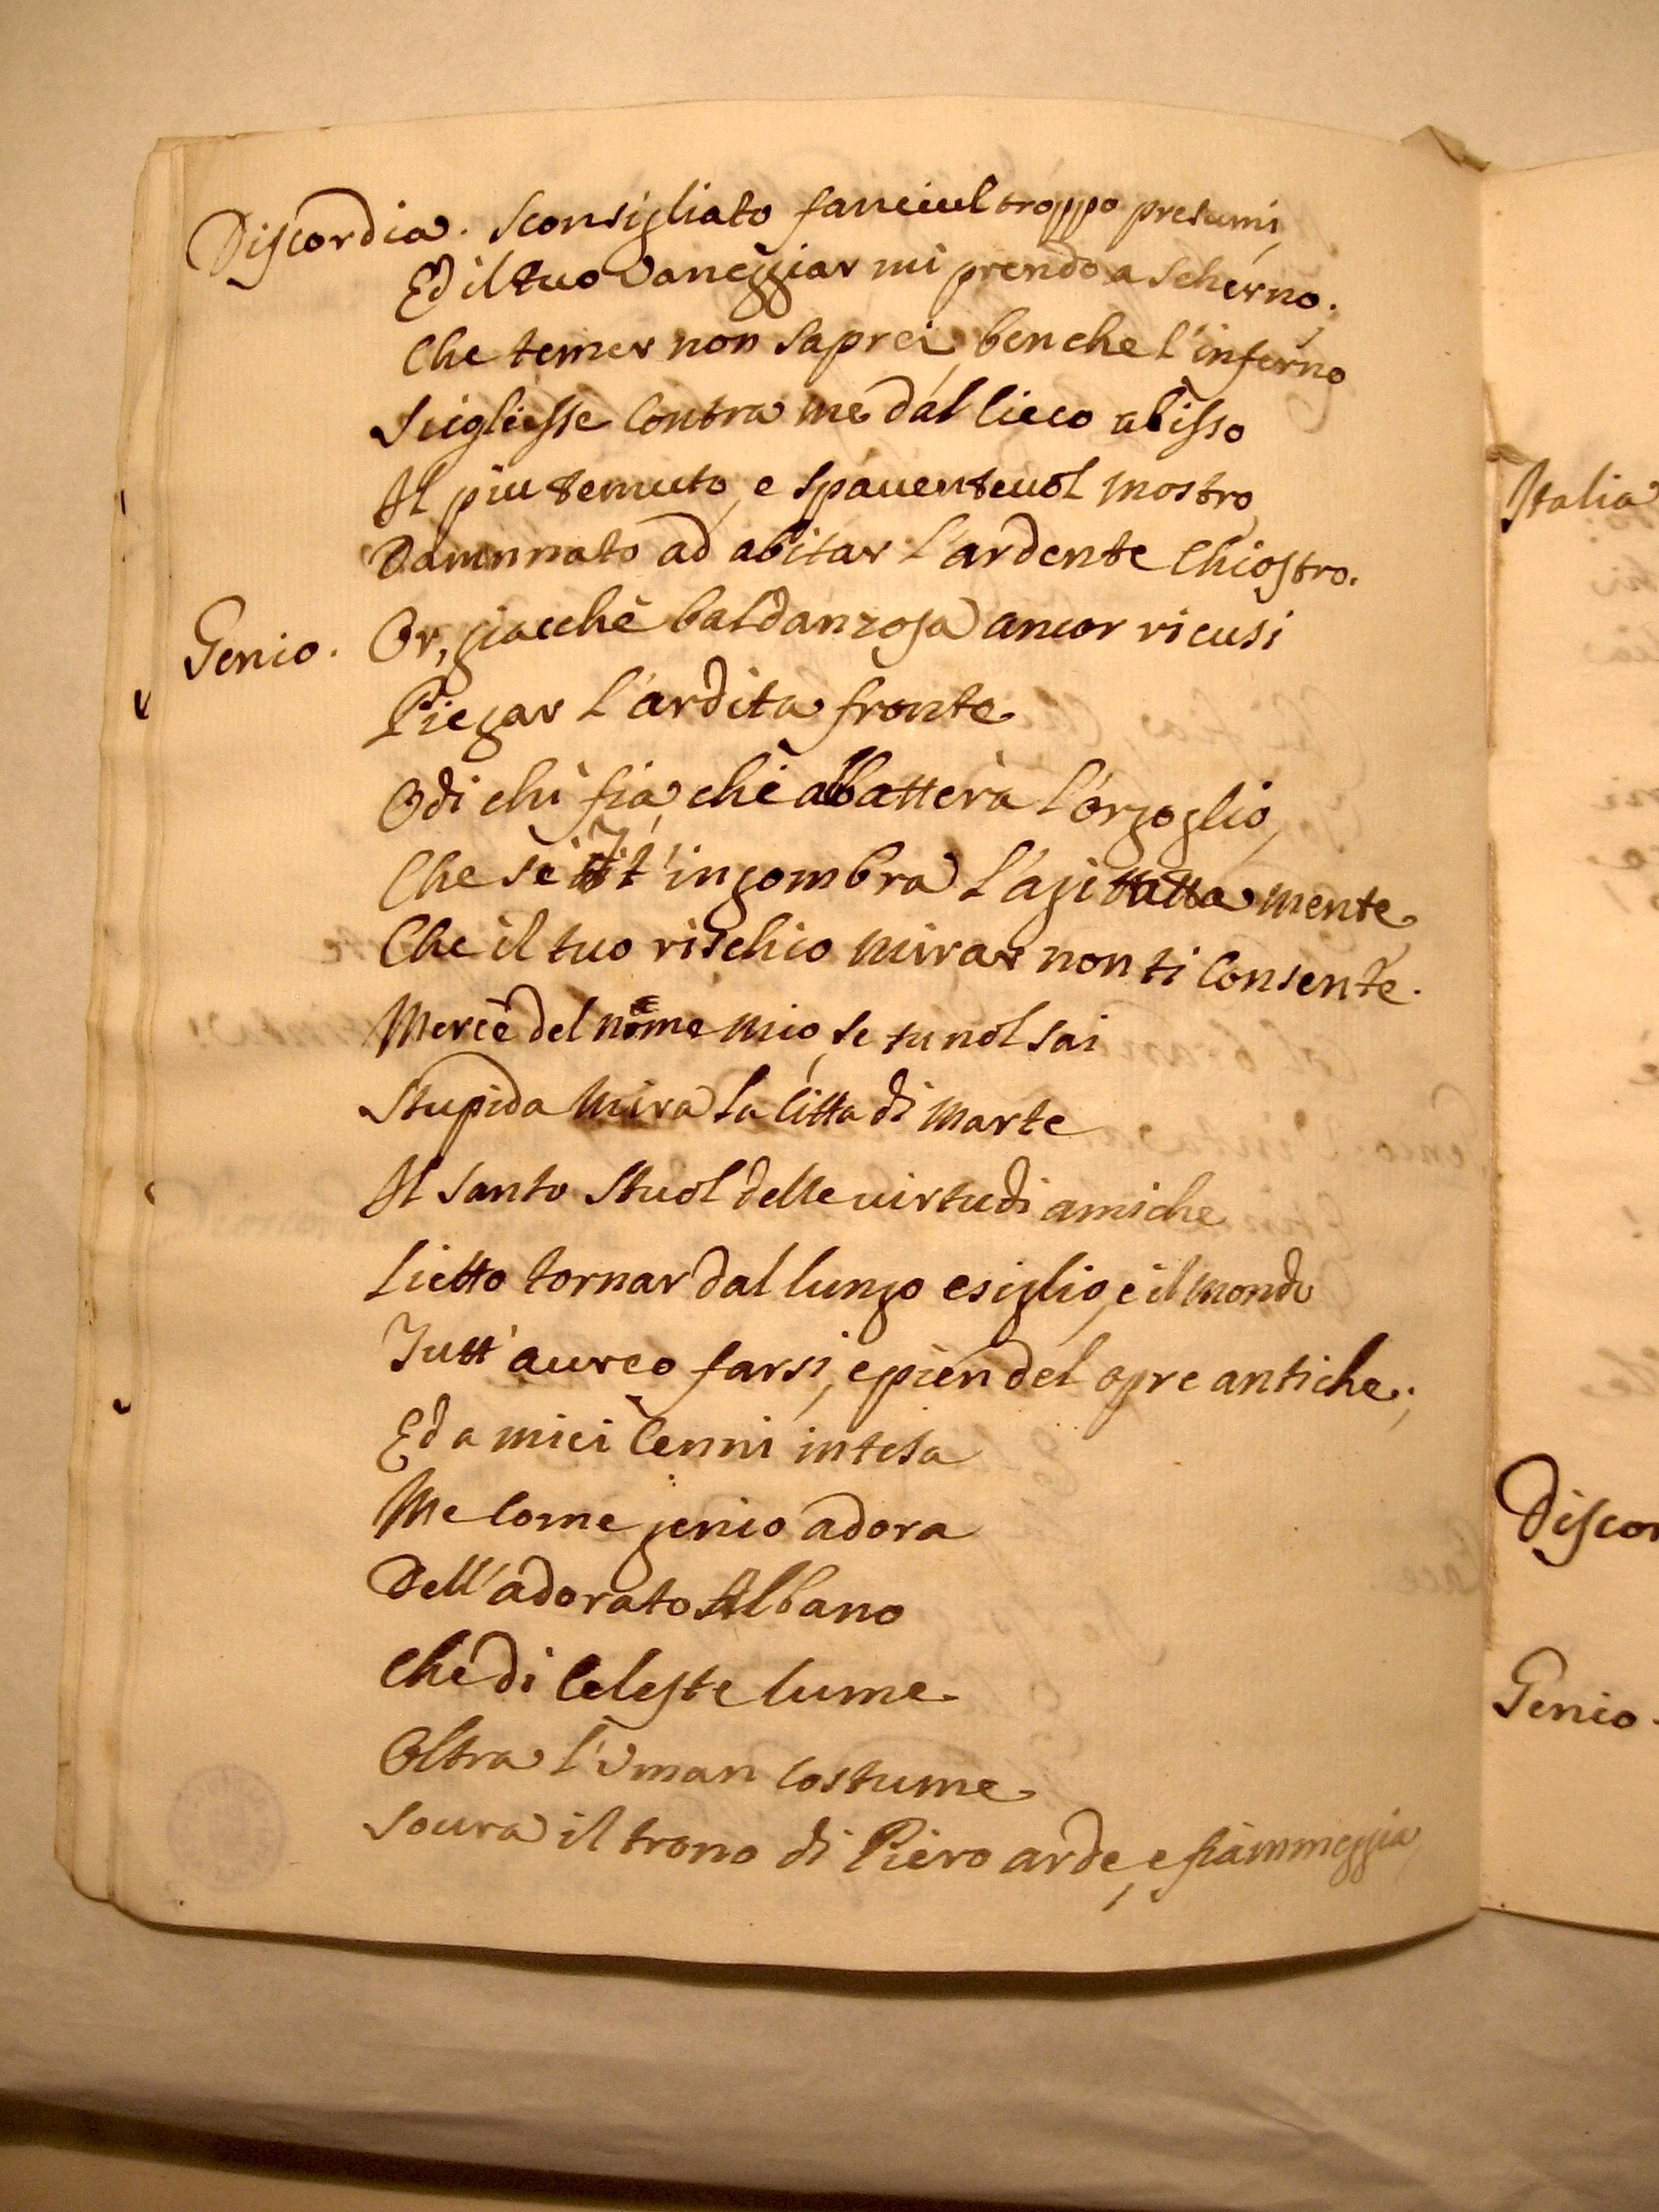 Discordia. Sconsigliato fanciul troppo presumi,
Ed il tuo vaneggiar mi prendo a scherno.
Che temer non saprei, benche l'inferno
Sciogliesse contra me dal cieco abisso
Il piu temuto, e spauenteuol mostro
Damnnato ad abitar l'ardente chiostro.
Genio. Or, giacchè baldanzosa ancor ricusi
Piegar l'ardita fronte
Odi chi fia, che abbatterà l'orgoglio,
Che sì t'ingombra l'agitatta mente,
Che il tuo rischio mirar non ti consente.
Mercè del nome mio, se tu nol sai
Stupida mira la Citta di Marte
Il santo stuol delle uirtudi amiche
Lietto tornar dal lungo esiglio, e il mondo
Tutt'aureo farsi, e pien del opre antiche;
Ed a miei cenni intesa
Me come genio adora
Dell'adorato Albano
Che di celeste lume
Oltra l'vman costume
Soura il trono di Piero arde, e fiammeggia,
Italia
Discor
Genio.